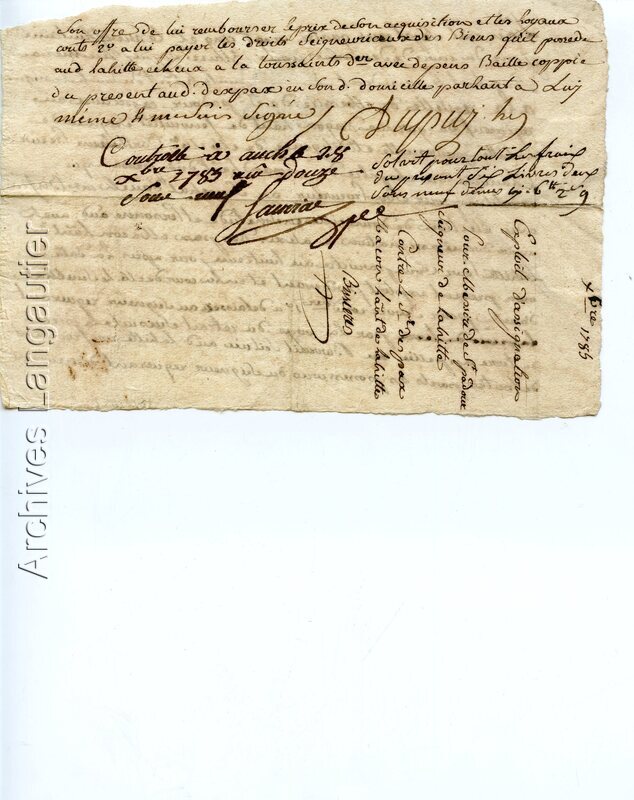 Son offre de lui rembourser le prix de son acquisition et les loyaux
couts 2º a lui payer les droits Seigneuriaux des Biens qu'il possede
aud lahitte echeux a la toussaints der avec depens Baillé coppie
du present aud. despax en son domicille parlant a Luy
même p me Suis Signé Dupuy
Controllé à auch le 28
xbre 1785 reçu douze
Sous neuf
Solvit pour tout Les fraix
du present Six Livres deux
Sous neuf deniers cy. 6tt 2s 9
xbre 1785
Exploit d'assignation
Pour Messire de St padoux
Seigneur de lahitte
Contre le Sr. despax
macon habitant de lahitte
Archives Langautier